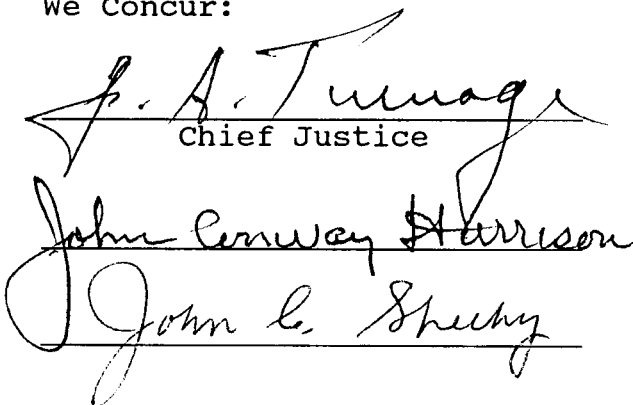 We Concur:
J. A. Turnage
Chief Justice
John Conway Harrison
John C. Sheehy